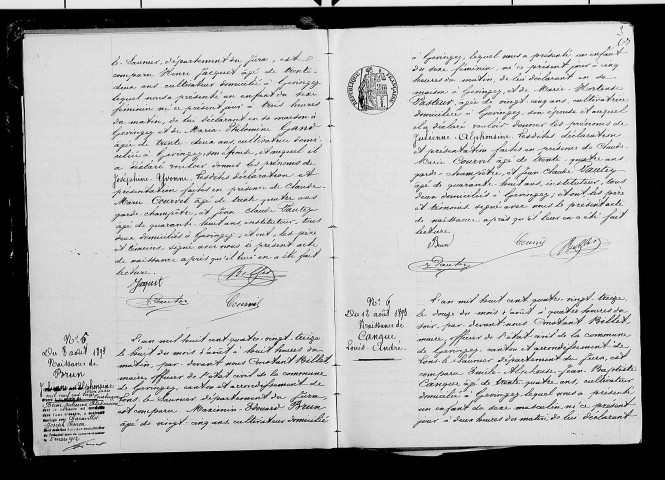 le Saunier, département du Jura, est
comparu Henri Jacquet âgé de trente-
deux ans, cultivateur domicilié à Geringey
lequel nous a présenté un enfant du sexe
féminin né ce présent jour à trois heures
du matin, de lui déclarant en sa maison à
Geringey et de Maria Philomine
âgée de trente deux ans, cultivatrice domi-
ciliée à Geringey, son épouse, et auquel il
a déclaré vouloir donner les prénoms de
Joséphine Yvonne. Lesdites déclaration et
présentation faites en présence de Claude
Marie Courvot âgé de trente quatre ans
garde-champêtre, et Jean Claude
âgé de quarante huit ans instituteur, tous
deux domiciliés à Geringey; et ont, les père
et témoins, signé avec nous le présent acte
de naissance après qu'il leur en a été fait
lecture.
Jacquet
N° 5
Du 8 août 1893
Naissance de
Brun
Julienne Alphonsine
L'an mil huit cent quatre vingt treize
le huit du mois d'août à huit heures du
matin, par devant nous Constant Billet
maire officier de l'état civil de la commune
de Geringey, canton et arrondissement de
Lons le Saunier département du Jura
est comparu Maximin Edouard Brun
âgé de vingt cinq ans cultivateur domicilié
à Geringey, lequel nous a présenté un enfant
du sexe féminin, né ce présent jour à cinq
heures du matin, de lui déclarant en sa
maison à Geringey, et de Marie Hortense
Pasteur, âgée de vingt cinq ans, cultivatrice
domiciliée à Geringey, son épouse et auquel
il a déclaré vouloir donner les prénoms de
Julienne Alphonsine. Lesdites déclaration
et présentation faites en présence de Claude
Marie Courvot âgé de trente quatre ans
garde-champêtre, et Jean Claude
âgé de quarante huit ans, instituteur, tous
deux domiciliés à Geringey; et ont, les père
et témoins, signé avec nous le présent acte
de naissance après qu'il leur en a été fait
lecture.
Brun
N° 6
Du 12 août 1893
Naissance de
Canque
Louis André
L'an mil huit cent quatre vingt treize
le douze du mois d'août à quatre heures du
soir, par devant nous Constant Billet
maire, officier de l'état civil de la commune
de Geringey, canton et arrondissement de
Lons le Saunier département du Jura, est
comparu Emile Alphonse Jean Baptiste
Canque âgé de trente quatre ans, cultivateur
domicilié à Geringey, lequel nous a présenté
un enfant du sexe masculin, né ce présent
jour à deux heures du matin, de lui déclarant